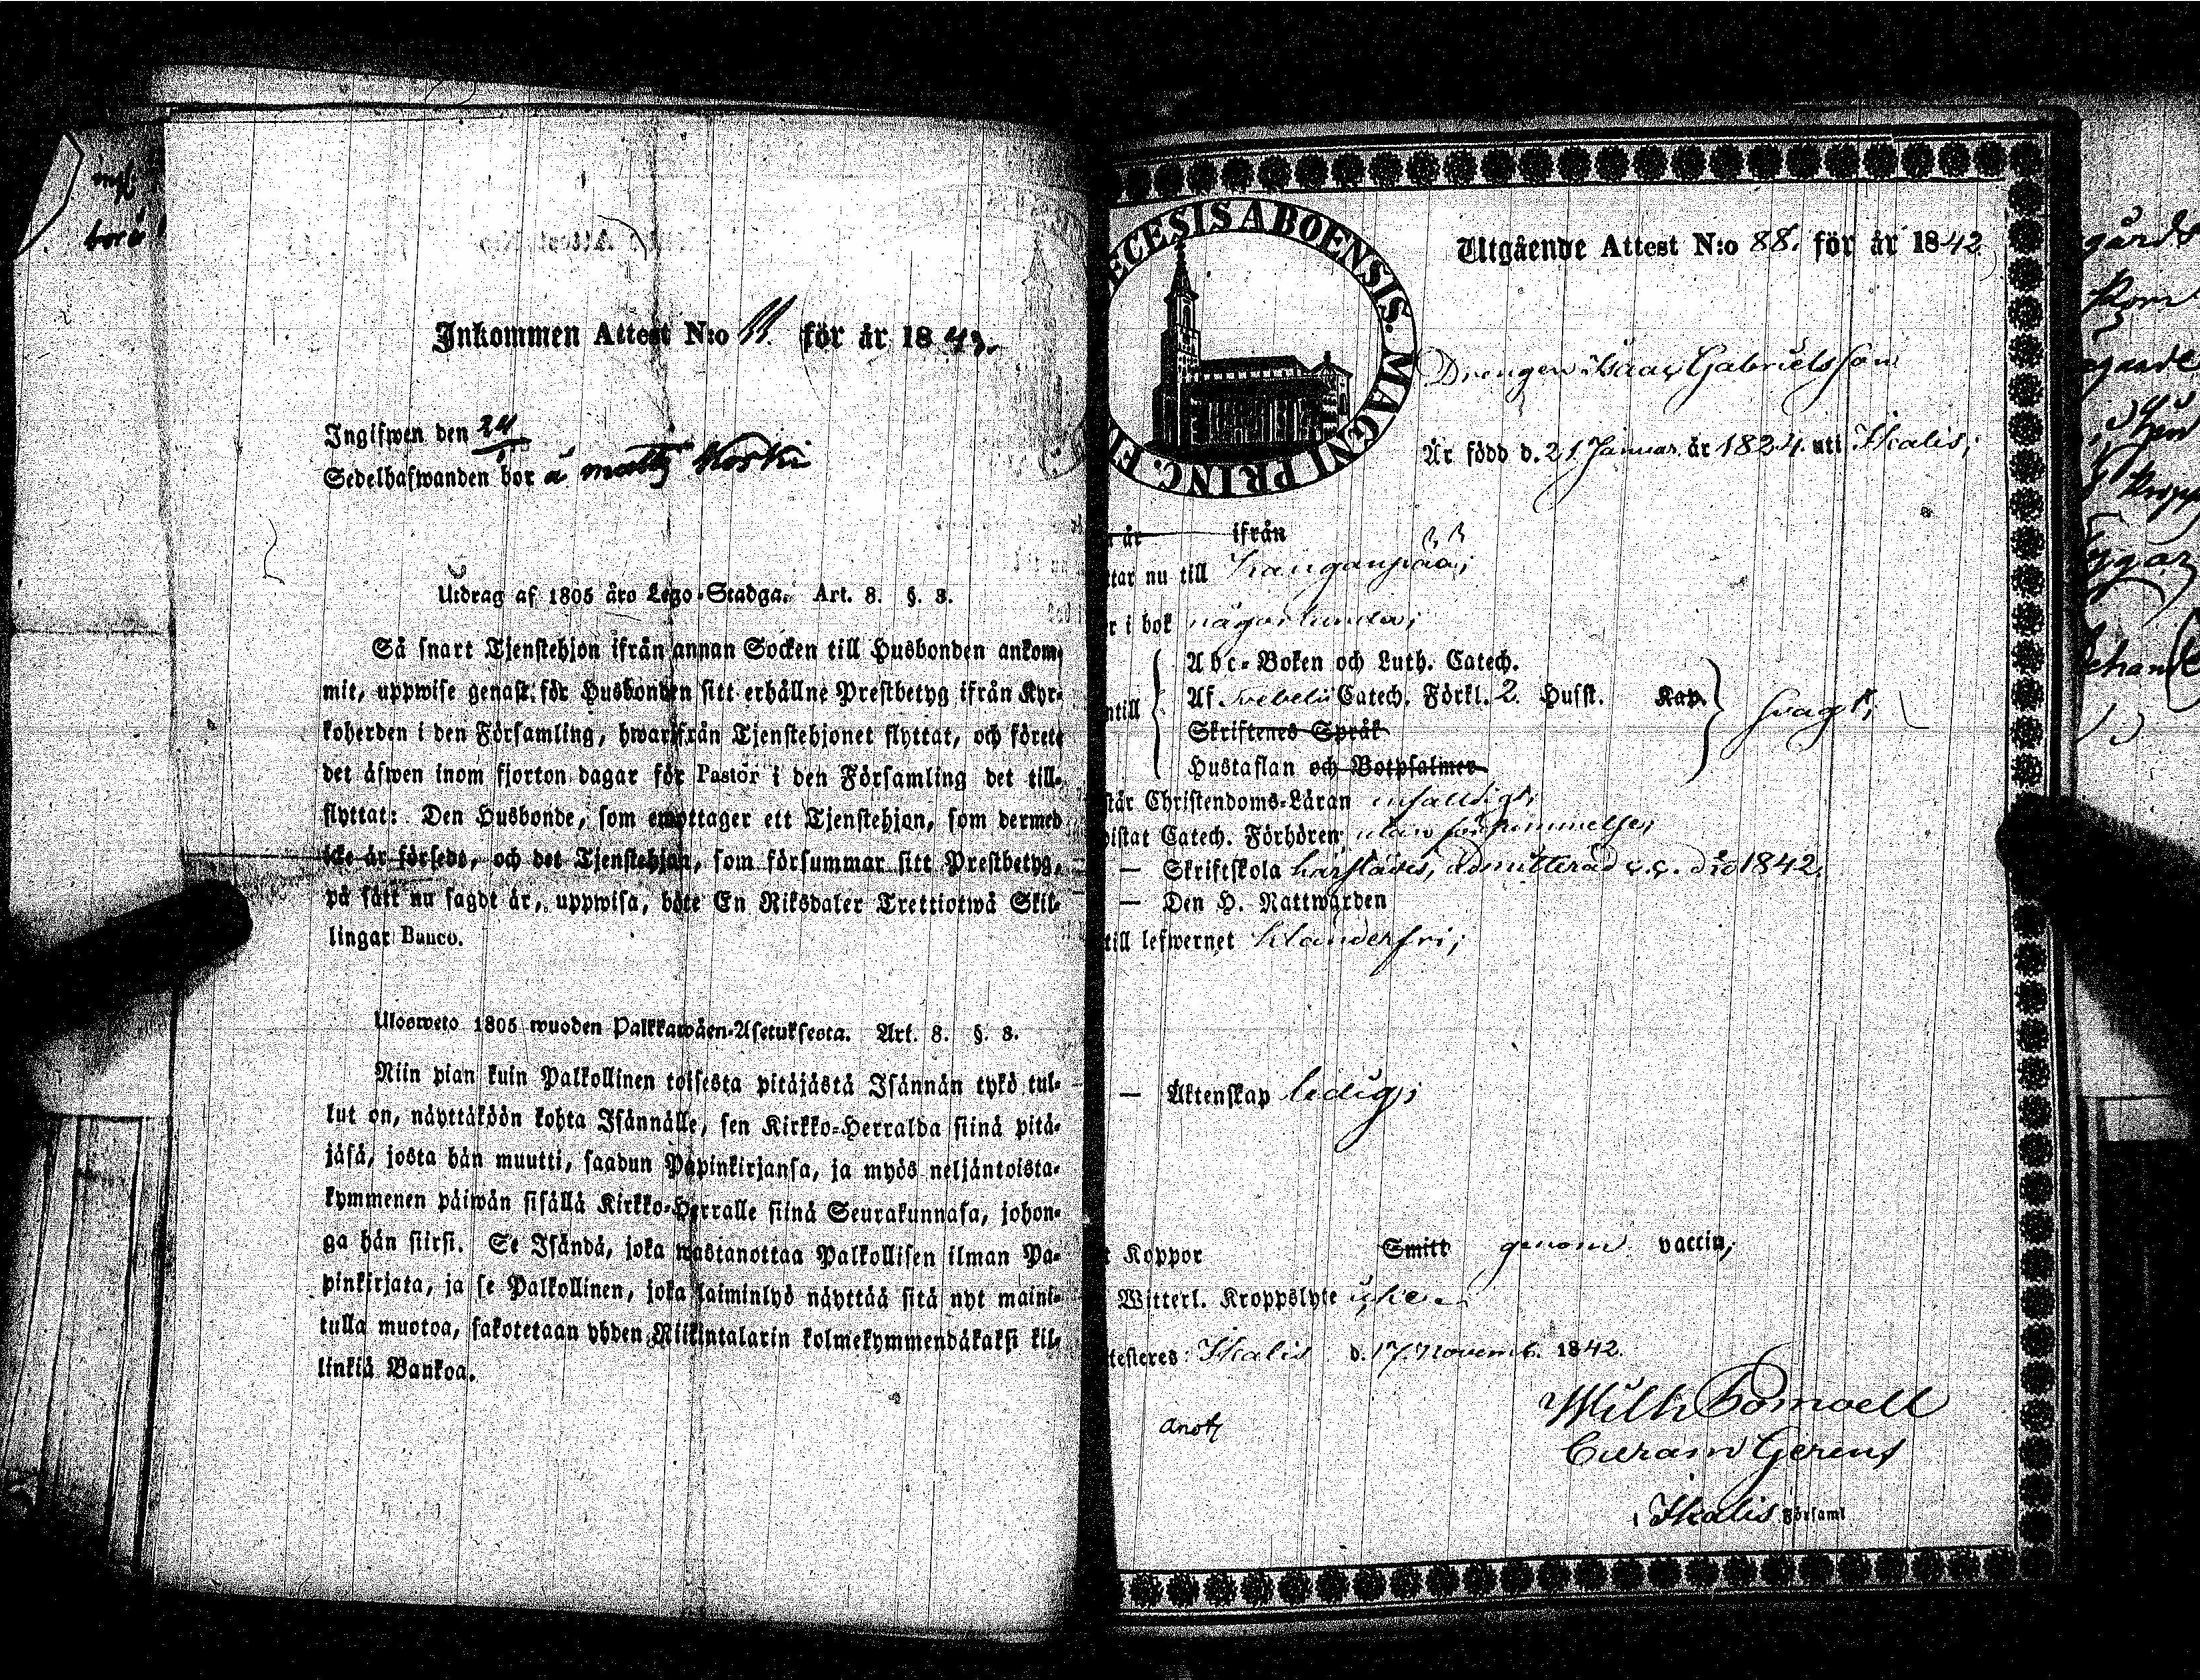 Inkommen Attest N:o 11. för år 1843.
Ingifwen den 24/1
Sedelhafwanden bor å matts Korki
Utdrag af 1805 års Lego-Stadga. Art. 8. §. 3.
Så snart Tjenstehjon ifrån annan Socken till Husbonden ankom-
mit, uppwise genast för Husbonden sitt erhållne Prestbetyg ifrån Kyr-
koherden i den Församling, hwarifrån Tjenstehjonet flyttat, och förete
det äfwen inom fjorton dagar för Pastor i den Församling det till-
flyttat: Den Husbonde, som emottager ett Tjenstehjon, som dermed
icke är försedt, och det Tjenstehjon, som försummar sitt Prestbetyg,
på sätt nu sagdt är, uppwisa, böte En Riksdaler Trettiotwå Skil-
lingar Banco.
Ulosweto 1805 wuoden Palkkawäen-Asetuksesta. Art. 8. §. 3.
Niin pian kuin Palkollinen toisesta pitäjästä Isännän tykö tul-
lut on, näyttäköön kohta Isännälle, sen Kirkko-Herralda siinä pitä-
jäsä, josta hän muutti, saadun Papinkirjansa, ja myös neljäntoista-
kymmenen päiwän sisällä Kirkko-Herralle siinä Seurakunnasa, johon-
ga hän siirsi. Se Isändä, joka wastanottaa Palkollisen ilman Pa-
pinkirjata, ja se Palkollinen, joka laiminlyö näyttää sitä nyt maini-
tulla muotoa, sakotetaan yhden Riikintalarin kolmekymmendäkaksi kil-
linkiä Bankoa.
ECESIS ABOENSIS. MAGNI PRINC. FI
Utgående Attest N:o 88. för år 1842.
Drengen Isaac Gabrielsson
Är född d. 21 Januar. år 1824. uti Ikalis;
är ifrån
tar nu till Kanganpää;
r i bok någorlunda;
Abc-Boken och Luth. Catech.
Af Svebelii Catech. Förkl. 2. Husst. Kap.
ntill
svagt;
Skriftenes Språk
Hustaflan och Botpsalmer
står Christendoms-Läran enfaldigt;
istat Catech. Förhören utan försummelse;
— Skriftskola härstädes, admitterad 1842.
— Den H. Nattwarden
till lefwernet klanderfri;
— Äktenskap ledig;
t Koppor Smitt genom vaccin;
Witterl. Kroppslyte icke
testeres Ikalis d. 17. Novemb. 1842.
Wilh
Curam Gerens
i Ikalis Församl